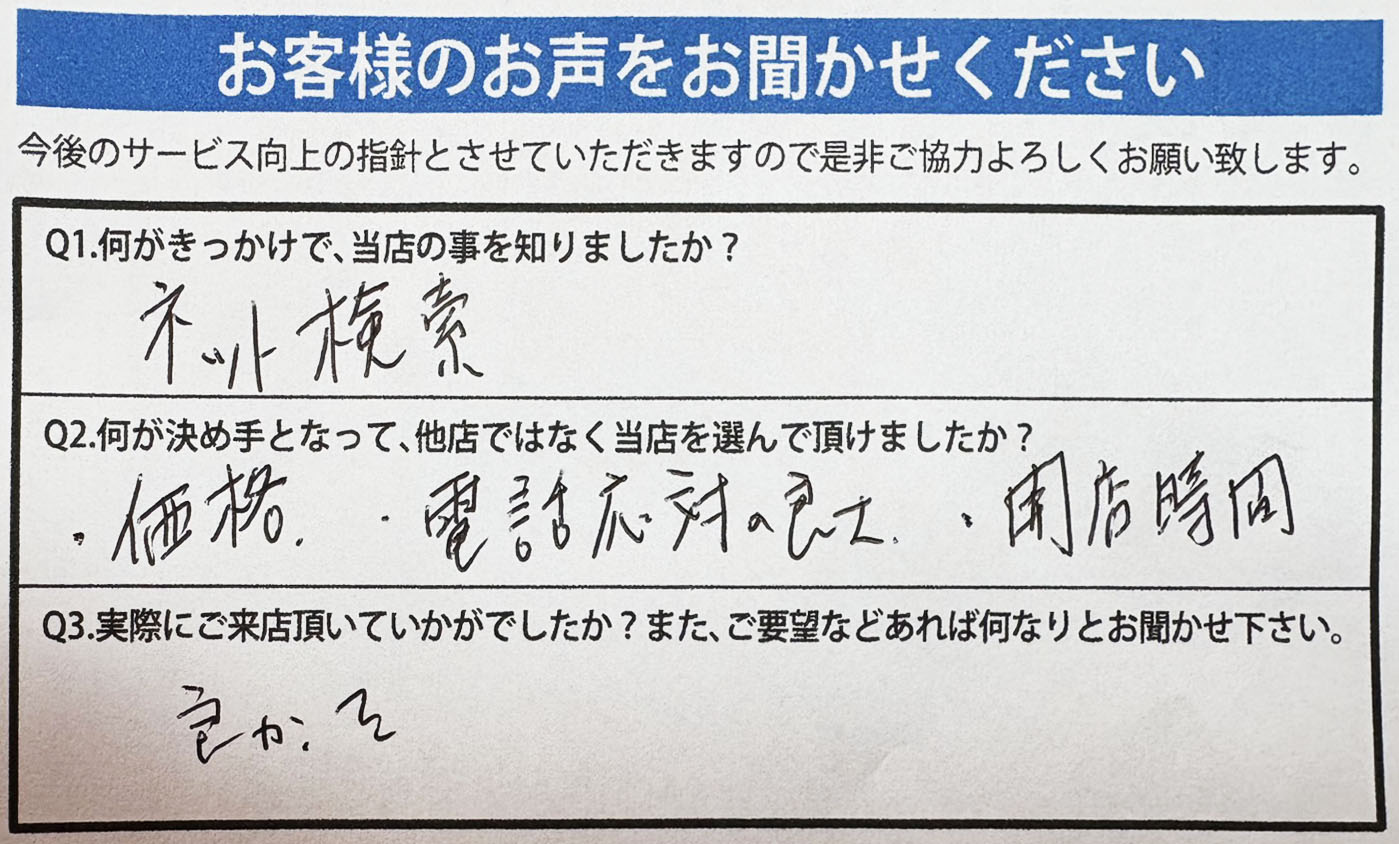 お客様のお声をお聞かせください
今後のサービス向上の指針とさせていただきますので是非ご協力よろしくお願い致します。
Q1.何がきっかけで、当店の事を知りましたか？
ネット検索
Q2.何が決め手となって、他店ではなく当店を選んで頂けましたか？
・価格. ・電話応対の良さ. ・開店時間
Q3.実際にご来店頂いていかがでしたか？また、ご要望などあれば何なりとお聞かせ下さい。